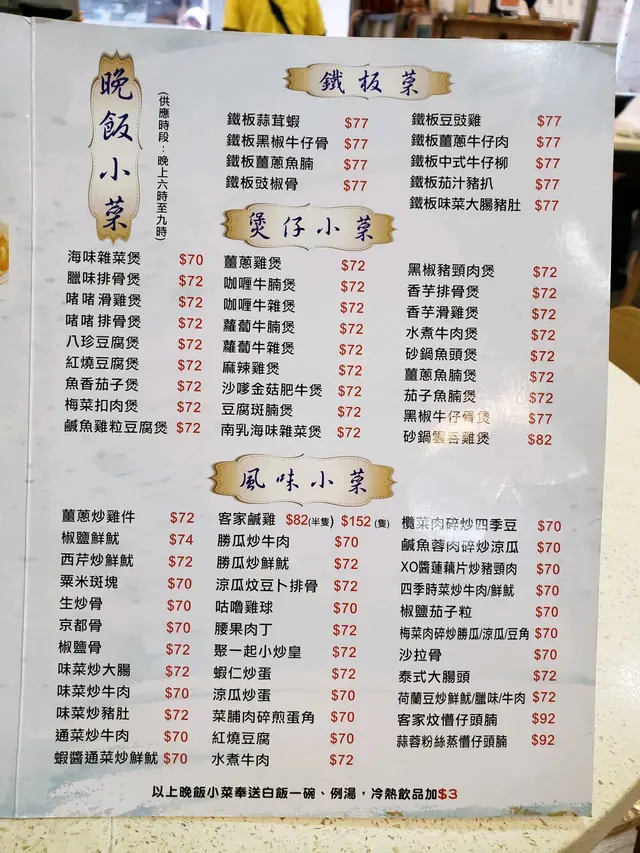 晚飯小菜
(供應時段：晚上六時至九時)
鐵板菜
鐵板蒜茸蝦 $77
鐵板黑椒牛仔骨 $77
鐵板薑蔥魚腩 $77
鐵板豉椒骨 $77
鐵板豆豉雞 $77
鐵板薑蔥牛仔肉 $77
鐵板中式牛仔柳 $77
鐵板茄汁豬扒 $77
鐵板味菜大腸豬肚 $77
煲仔小菜
海味雜菜煲 $70
臘味排骨煲 $72
啫啫滑雞煲 $72
啫啫排骨煲 $72
八珍豆腐煲 $72
紅燒豆腐煲 $72
魚香茄子煲 $72
梅菜扣肉煲 $72
鹹魚雞粒豆腐煲 $72
薑蔥雞煲 $72
咖喱牛腩煲 $72
咖喱牛雜煲 $72
蘿蔔牛腩煲 $72
蘿蔔牛雜煲 $72
麻辣雞煲 $72
沙嗲金菇肥牛煲 $72
豆腐斑腩煲 $72
南乳海味雜菜煲 $72
黑椒豬頸肉煲 $72
香芋排骨煲 $72
香芋滑雞煲 $72
水煮牛肉煲 $72
砂鍋魚頭煲 $72
薑蔥魚腩煲 $72
茄子魚腩煲 $72
黑椒牛仔骨煲 $77
砂鍋雲吞雞煲 $82
風味小菜
薑蔥炒雞件 $72
椒鹽鮮魷 $74
西芹炒鮮魷 $72
粟米斑塊 $70
生炒骨 $70
京都骨 $70
椒鹽骨 $72
味菜炒大腸 $72
味菜炒牛肉 $70
味菜炒豬肚 $72
通菜炒牛肉 $70
蝦醬通菜炒鮮魷 $70
客家鹹雞 $82(半隻) $152(隻)
勝瓜炒牛肉 $70
勝瓜炒鮮魷 $72
涼瓜炆豆卜排骨 $72
咕嚕雞球 $70
腰果肉丁 $72
聚一起小炒皇 $72
蝦仁炒蛋 $72
涼瓜炒蛋 $70
菜脯肉碎煎蛋角 $70
紅燒豆腐 $70
水煮牛肉 $72
欖菜肉碎炒四季豆 $70
鹹魚蓉肉碎炒涼瓜 $70
XO醬蓮藕片炒豬頸肉 $70
四季時菜炒牛肉/鮮魷 $70
椒鹽茄子粒 $70
梅菜肉碎炒勝瓜/涼瓜/豆角 $70
沙拉骨 $70
泰式大腸頭 $72
荷蘭豆炒鮮魷/臘味/牛肉 $72
客家炆懵仔頭腩 $92
蒜蓉粉絲蒸懵仔頭腩 $92
以上晚飯小菜奉送白飯一碗、例湯，冷熱飲品加$3